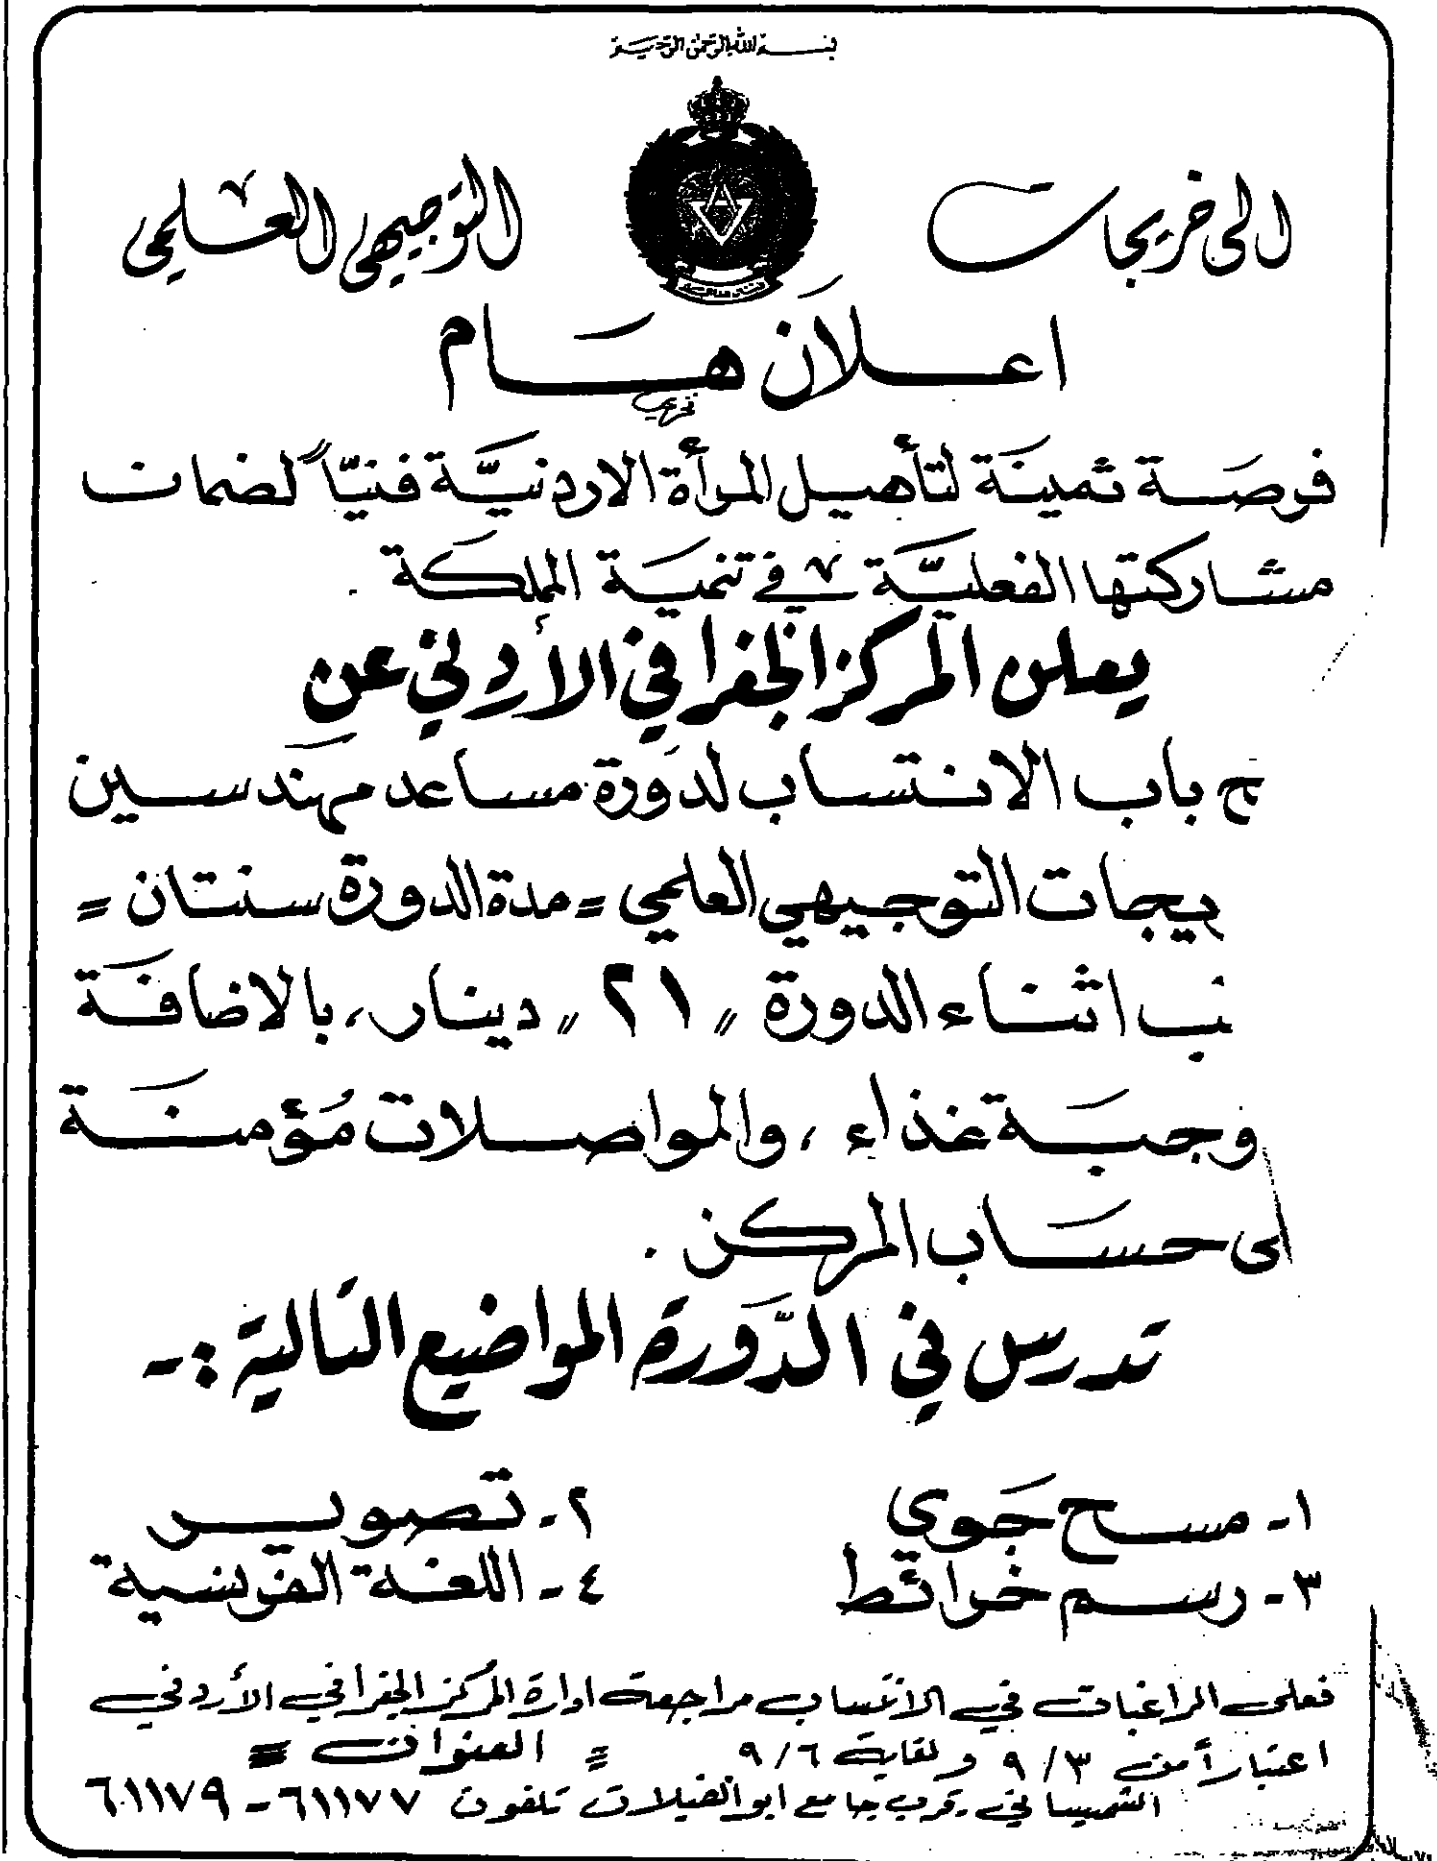 بسم الله الرحمن الرحيم
الى خريجات التوجيهي العلمي
اعلان هام
فرصة ثمينة لتأهيل المرأة الاردنيّة فنيّاً لضمان
مشاركتها الفعليّة في تنمية المملكة .
يعلن المركز الجغرافي الأردني عن
ح باب الانتساب لدورة مساعد مهندسين
يجات التوجيهي العلمي = مدة الدورة سنتان =
ب اثناء الدورة " ٢١ " دينار، بالاضافة
وجبة غذاء ، والمواصلات مُؤمنة
ى حساب المركز .
تدرس في الدّورة المواضيع التالية :-
١- مسح جوي ٢- تصوير
٣- رسم خرائط ٤- اللغة الفرنسية
فعلى الراغبات في الانتساب مراجعة ادارة المركز الجغرافي الأردني
اعتباراً من ٩/٣ ولغاية ٩/٦ = العنوان =
الشميساني قرب جامع ابو الفيلات تلفون ٦١١٧٧ - ٦١١٧٩